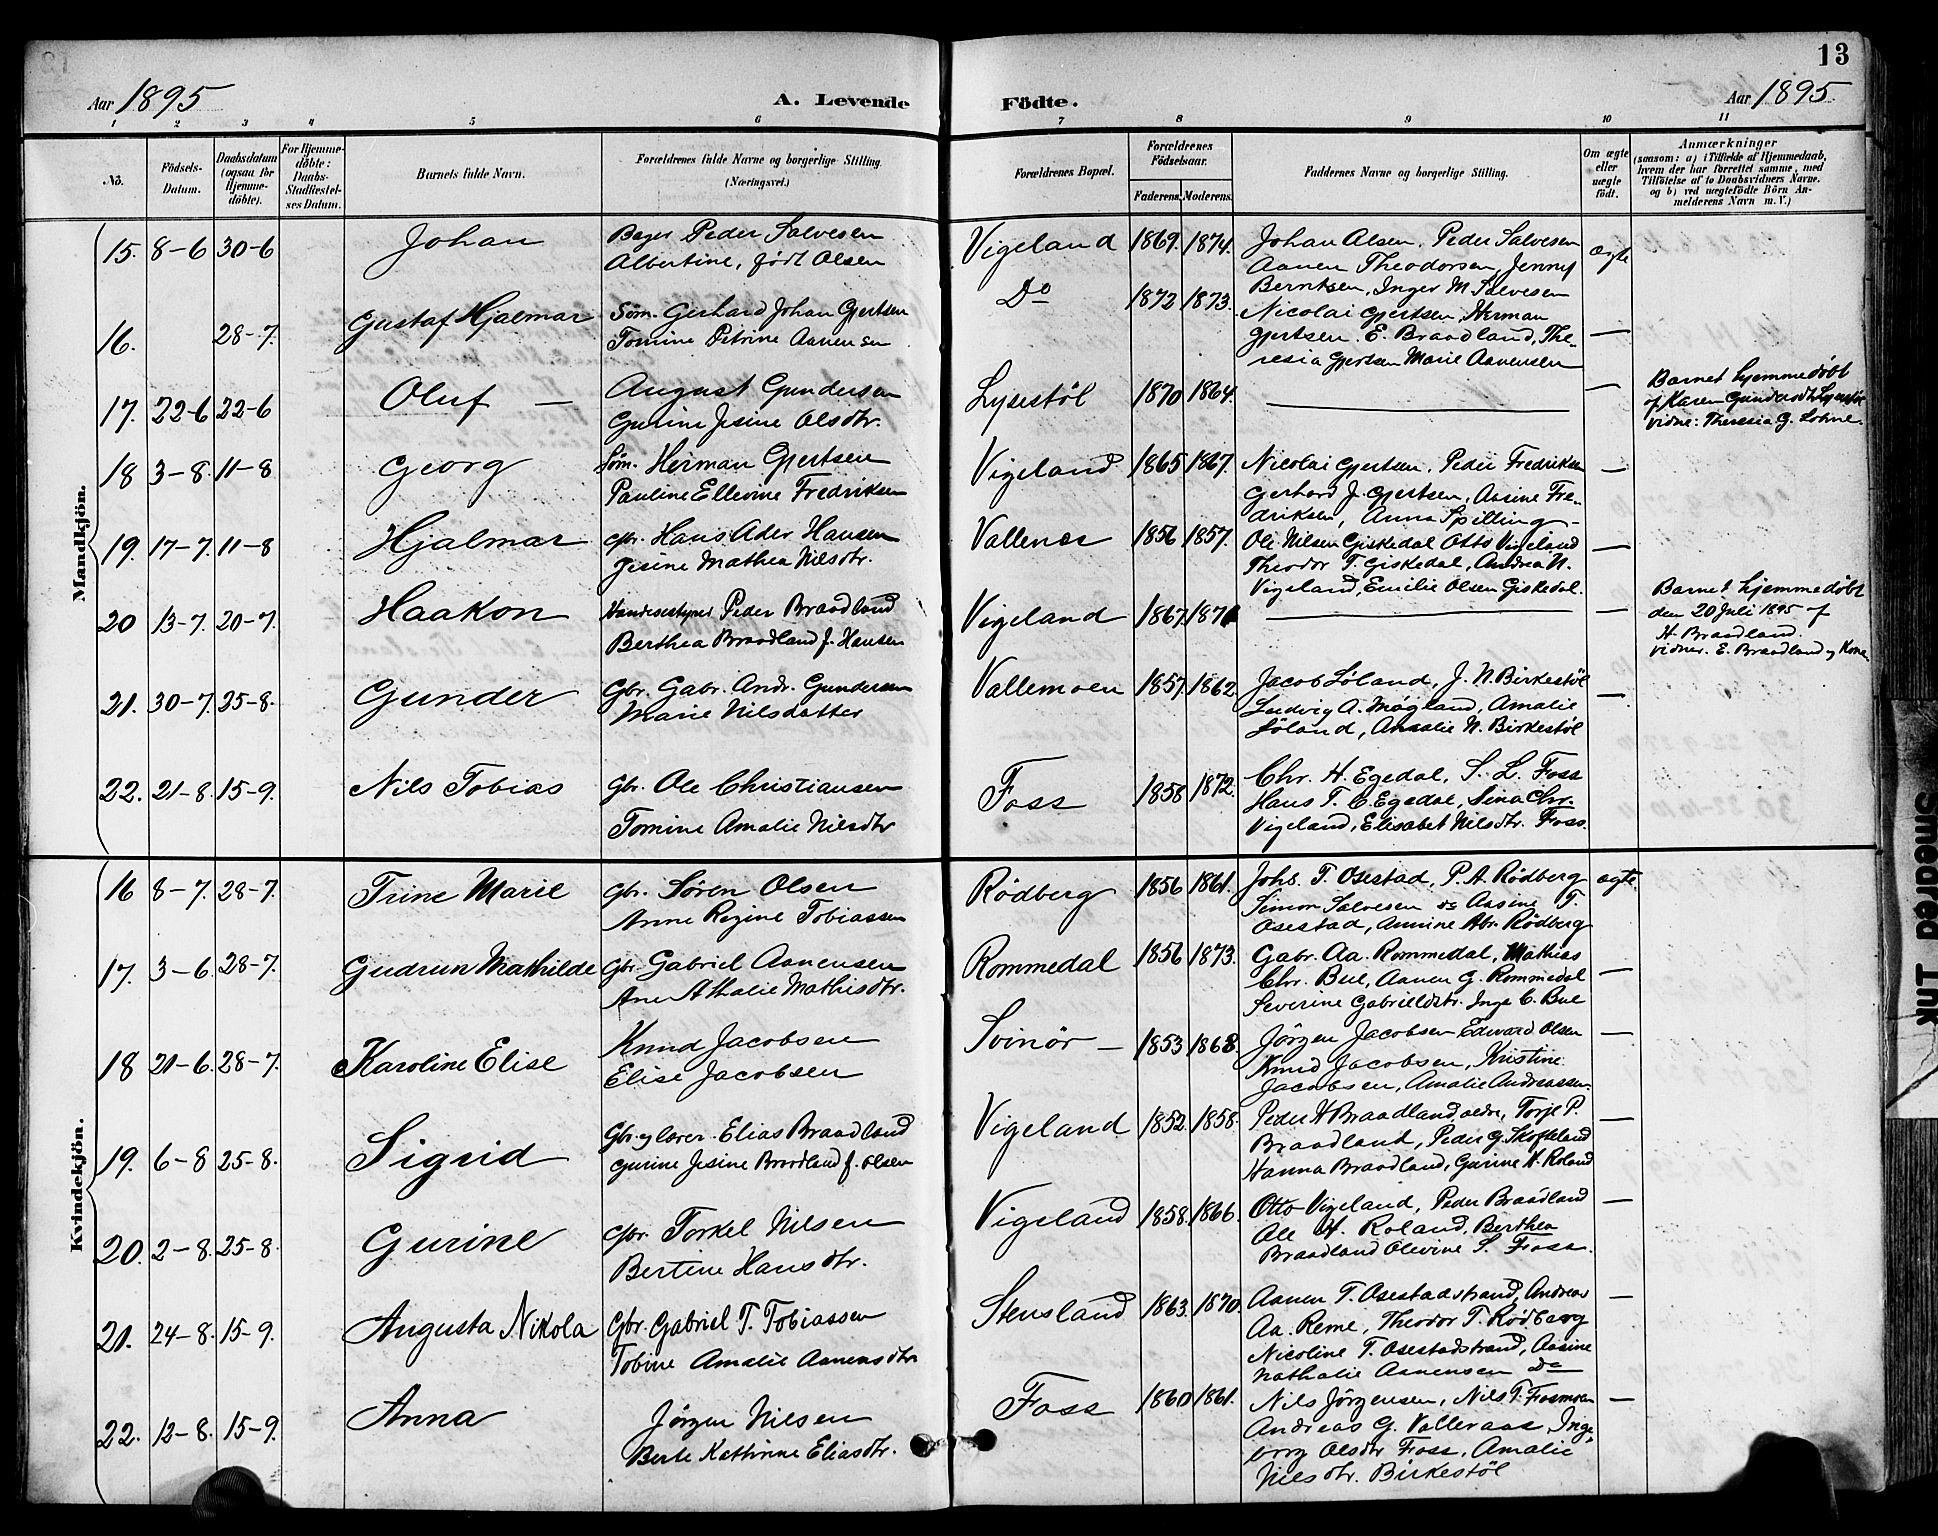 13
Aar 1895
A. Levende Födte.
Aar 1895
1 2 3 4 5 6 7 8 9 10 11
No.
Födsels-Datum.
Daabsdatum (ogsaa for Hjemme-döbte).
For Hjemme-döbte: Daabs-Stadfæstel-ses Datum.
Barnets fulde Navn.
Forældrenes fulde Navne og borgerlige Stilling. (Næringsvei.)
Forældrenes Bopæl.
Forældrenes Födselsaar.
Faderens. Moderens.
Faddernes Navne og borgerlige Stilling.
Om ægte eller uægte födt.
Anmærkninger
(saasom: a) i Tilfælde af Hjemmedaab, hvem der har forrettet samme, med Tilföielse af to Daabsvidners Navne, og b) ved uægtefödte Börn An-melderens Navn m. V.)
Mandkjön.
15. 8-6 30-6 Johan
Bager Peder Salvesen
Albertine, født Olsen
Vigeland 1869. 1874.
Johan Olsen, Peder Salvesen
Aanen Theodorsen, Jenny
Berntsen, Inger M Salvesen
ægte
16. 28-7. Gustaf Hjalmar
Søm. Gerhard Johan Gjertsen
Tomine Petrine Aanensen
Do 1872 1873.
Nicolai Gjertsen, Herman
Gjertsen. E. Braadland, The-
resia Gjertsen Marie Aanensen
—
17. 22-6 22-6 Oluf —
August Gundersen
Gurine Jesine Olsdtr.
Lysestöl 1870 1864.
—
Barnet hjemmedøbt
af Karen Gundersdtr Lysestöl
vidne: Theresia G. Lohne.
18 3-8. 11-8 Georg
Søm. Herman Gjertsen
Pauline Ellevine Fredriksen
Vigeland 1865 1867.
Nicolai Gjertsen, Peder Fredriksen
Gerhard J. Gjertsen, Aasine Fre-
driksen, Anna Spilling —
—
19. 17-7. 11-8 Hjalmar
Gbr. Hans Ader Hansen
Jesine Mathea Nilsdtr.
Vallenes 1856 1857.
Ole Nilsen Giskedal Otto Vigeland
Theodor T. Giskedal, Andrea N.
Vigeland, Emilie Olsen Giskedal.
—
20 13-7. 20-7. Haakon
Handelsstyrer Peder Braadland
Berthea Braadland f. Hansen
Vigeland 1867. 1871
—
Barnet hjemmedøbt
den 20 Juli 1895 af
H. Braadland.
vidner. E. Braadland og Kone
21. 30-7. 25-8. Gunder
Gbr. Gabr. Andr. Gundersen
Marie Nilsdatter
Vallemoen 1857. 1862.
Jacob Løland, J. N. Birkestöl
Ludvig A. Møgland, Amalie
Løland, Amalie N. Birkestöl
—
22. 21-8. 15-9. Nils Tobias
Gbr. Ole Christiansen
Tomine Amalie Nilsdtr
Foss 1858 1872.
Chr. H. Egedal, S. L. Foss
Hans T. C. Egedal, Sina Chr.
Vigeland, Elisabet Nilsdtr. Foss.
Kvindekjön.
16 8-7. 28-7. Trine Marie
Gbr. Søren Olsen
Anne Regine Tobiassen
Rödberg 1856 1861.
Johs. T. Osestad, P. A. Rødberg
Simon Salvesen do Aasine T.
Osestad, Annine Abr. Rødberg
ægte
17. 3-6. 28-7. Gudrun Mathilde
Gbr. Gabriel Aanensen
Ane Athalie Mathisdtr.
Rommedal 1856 1873.
Gabr. Aa. Rommedal, Mathias
Chr. Bue, Aanen G. Rommedal
Severine Gabrielldtr. Inge C. Bue
—
18 21-6. 28-7. Karoline Elise
Knud Jacobsen
Elise Jacobsen
Svinör — 1853 1868
Jørgen Jacobsen Edward Olsen
Knud Jacobsen, Kristine
Jacobsen, Amalie Andreassen.
—
19. 6-8 25-8. Sigrid
Gbr. og lærer. Elias Braadland
Gurine Jesine Braadland f. Olsen
Vigeland 1852. 1858.
Peder H Braadland ældre, Torje P.
Braadland, Peder G. Skofteland
Hanna Braadland, Gurine H. Roland
—
20. 2-8. 25-8. Gurine
Gbr. Torkel Nilsen
Bertine Hansdtr.
Vigeland 1858. 1866.
Otto Vigeland, Peder Braadland
Ole H. Roland, Berthea
Braadland Olevine S. Foss.
—
21. 24-8. 15-9. Augusta Nikola
Gbr. Gabriel T. Tobiassen
Tobine Amalie Aanensdtr.
Stensland 1863. 1870.
Aanen T. Osestadstrand, Andreas
Aa. Reme, Theodor T. Rødberg
Nicoline T. Osestadstrand, Aasine
Nathalie Aanensen Do
—
22. 12-8. 15-9. Anna
Jørgen Nilsen
Berte Kathrine Eliasdtr.
Foss 1860 1861.
Nils Jørgensen, Nils T. Fosmoen
Andreas G. Valleraas, Inge-
borg Olsdtr Foss, Amalie
Nilsdtr. Birkestöl
—
Smeared Ink